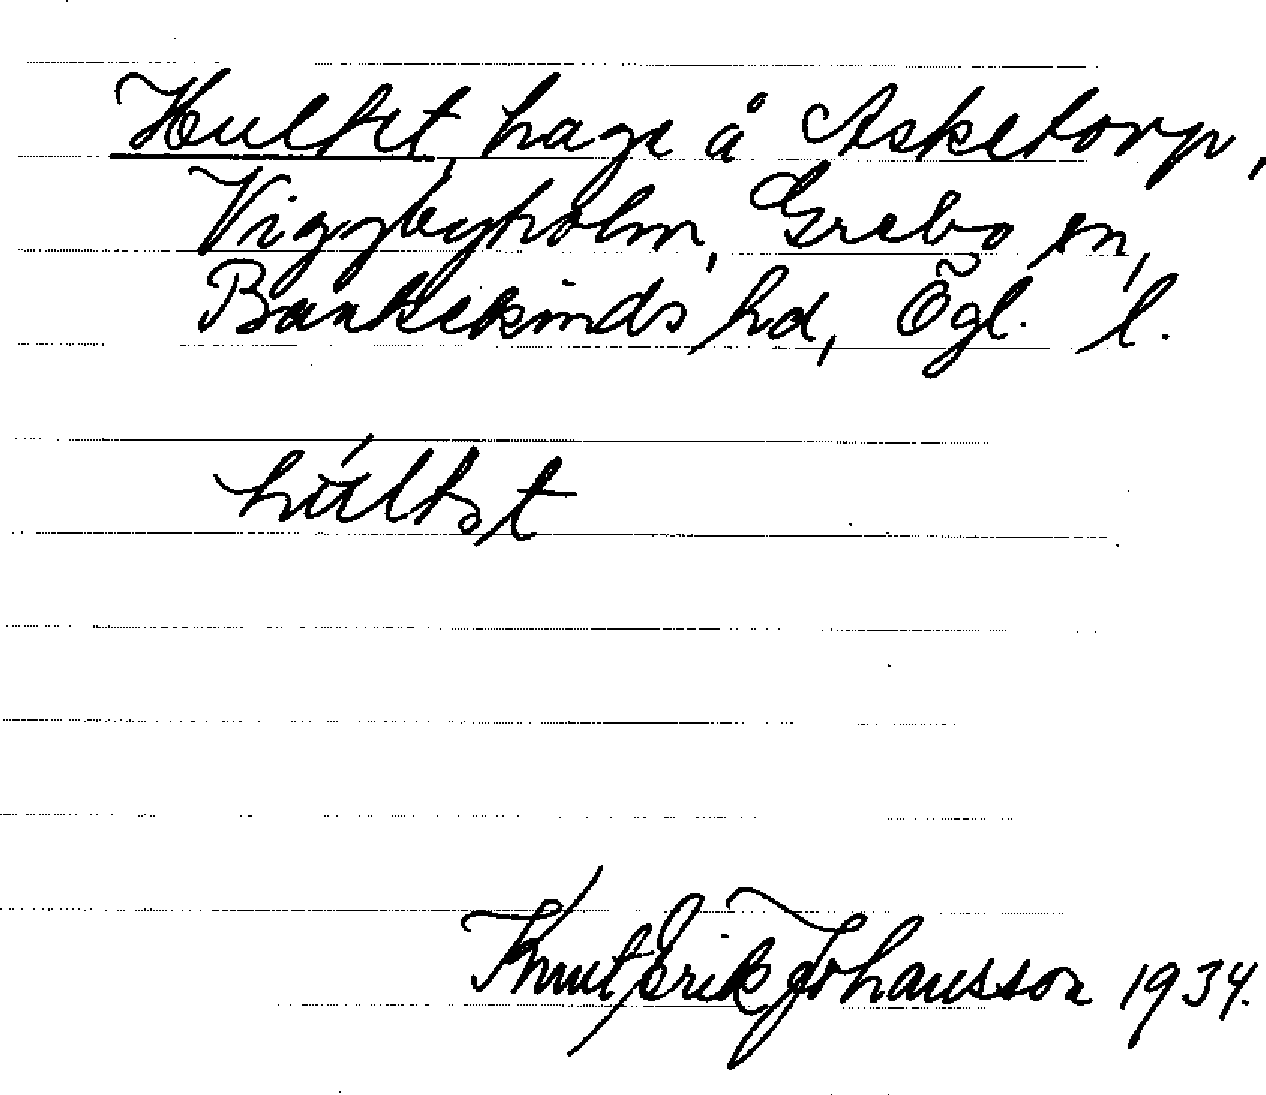 Hultet, hage å Asketorp,
Viggbyholm, Grebo sn,
Bankekinds hd, Ögl. l.
Knut Erik Johansson 1934.